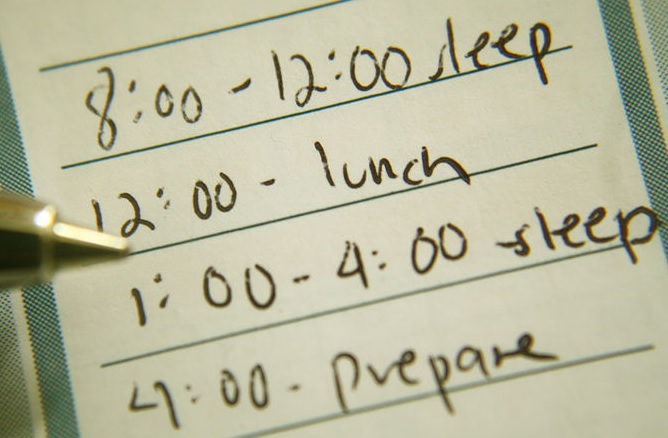 8:00 - 12:00 sleep
12:00 - lunch
1:00 - 4:00 sleep
4:00 - prepare